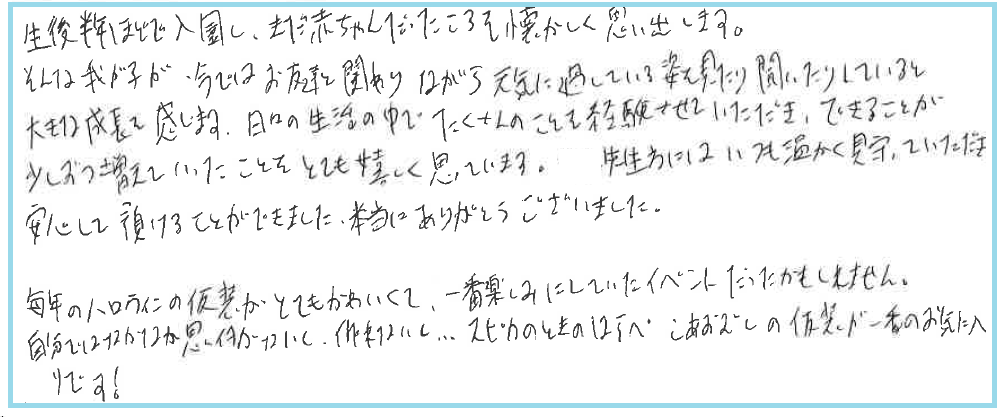 生後半年ほどで入園し、まだ赤ちゃんだったころを懐かしく思い出します。
そんな我が子が、今ではお友達と関わりながら元気に過している姿を見たり聞いたりしていると
大きな成長を感じます。日々の生活の中でたくさんのことを経験させていただき、できることが
少しずつ増えていったことをとても嬉しく思っています。 先生方にはいつも温かく見守っていただき
安心して預けることができました。本当にありがとうございました。
毎年のハロウィンの仮装がとてもかわいくて、一番楽しみにしていたイベントだったかもしれません。
自分ではなかなか思い付かないし、作れないし… スピカのときのはらぺこあおむしの仮装が一番のお気に入
りです!